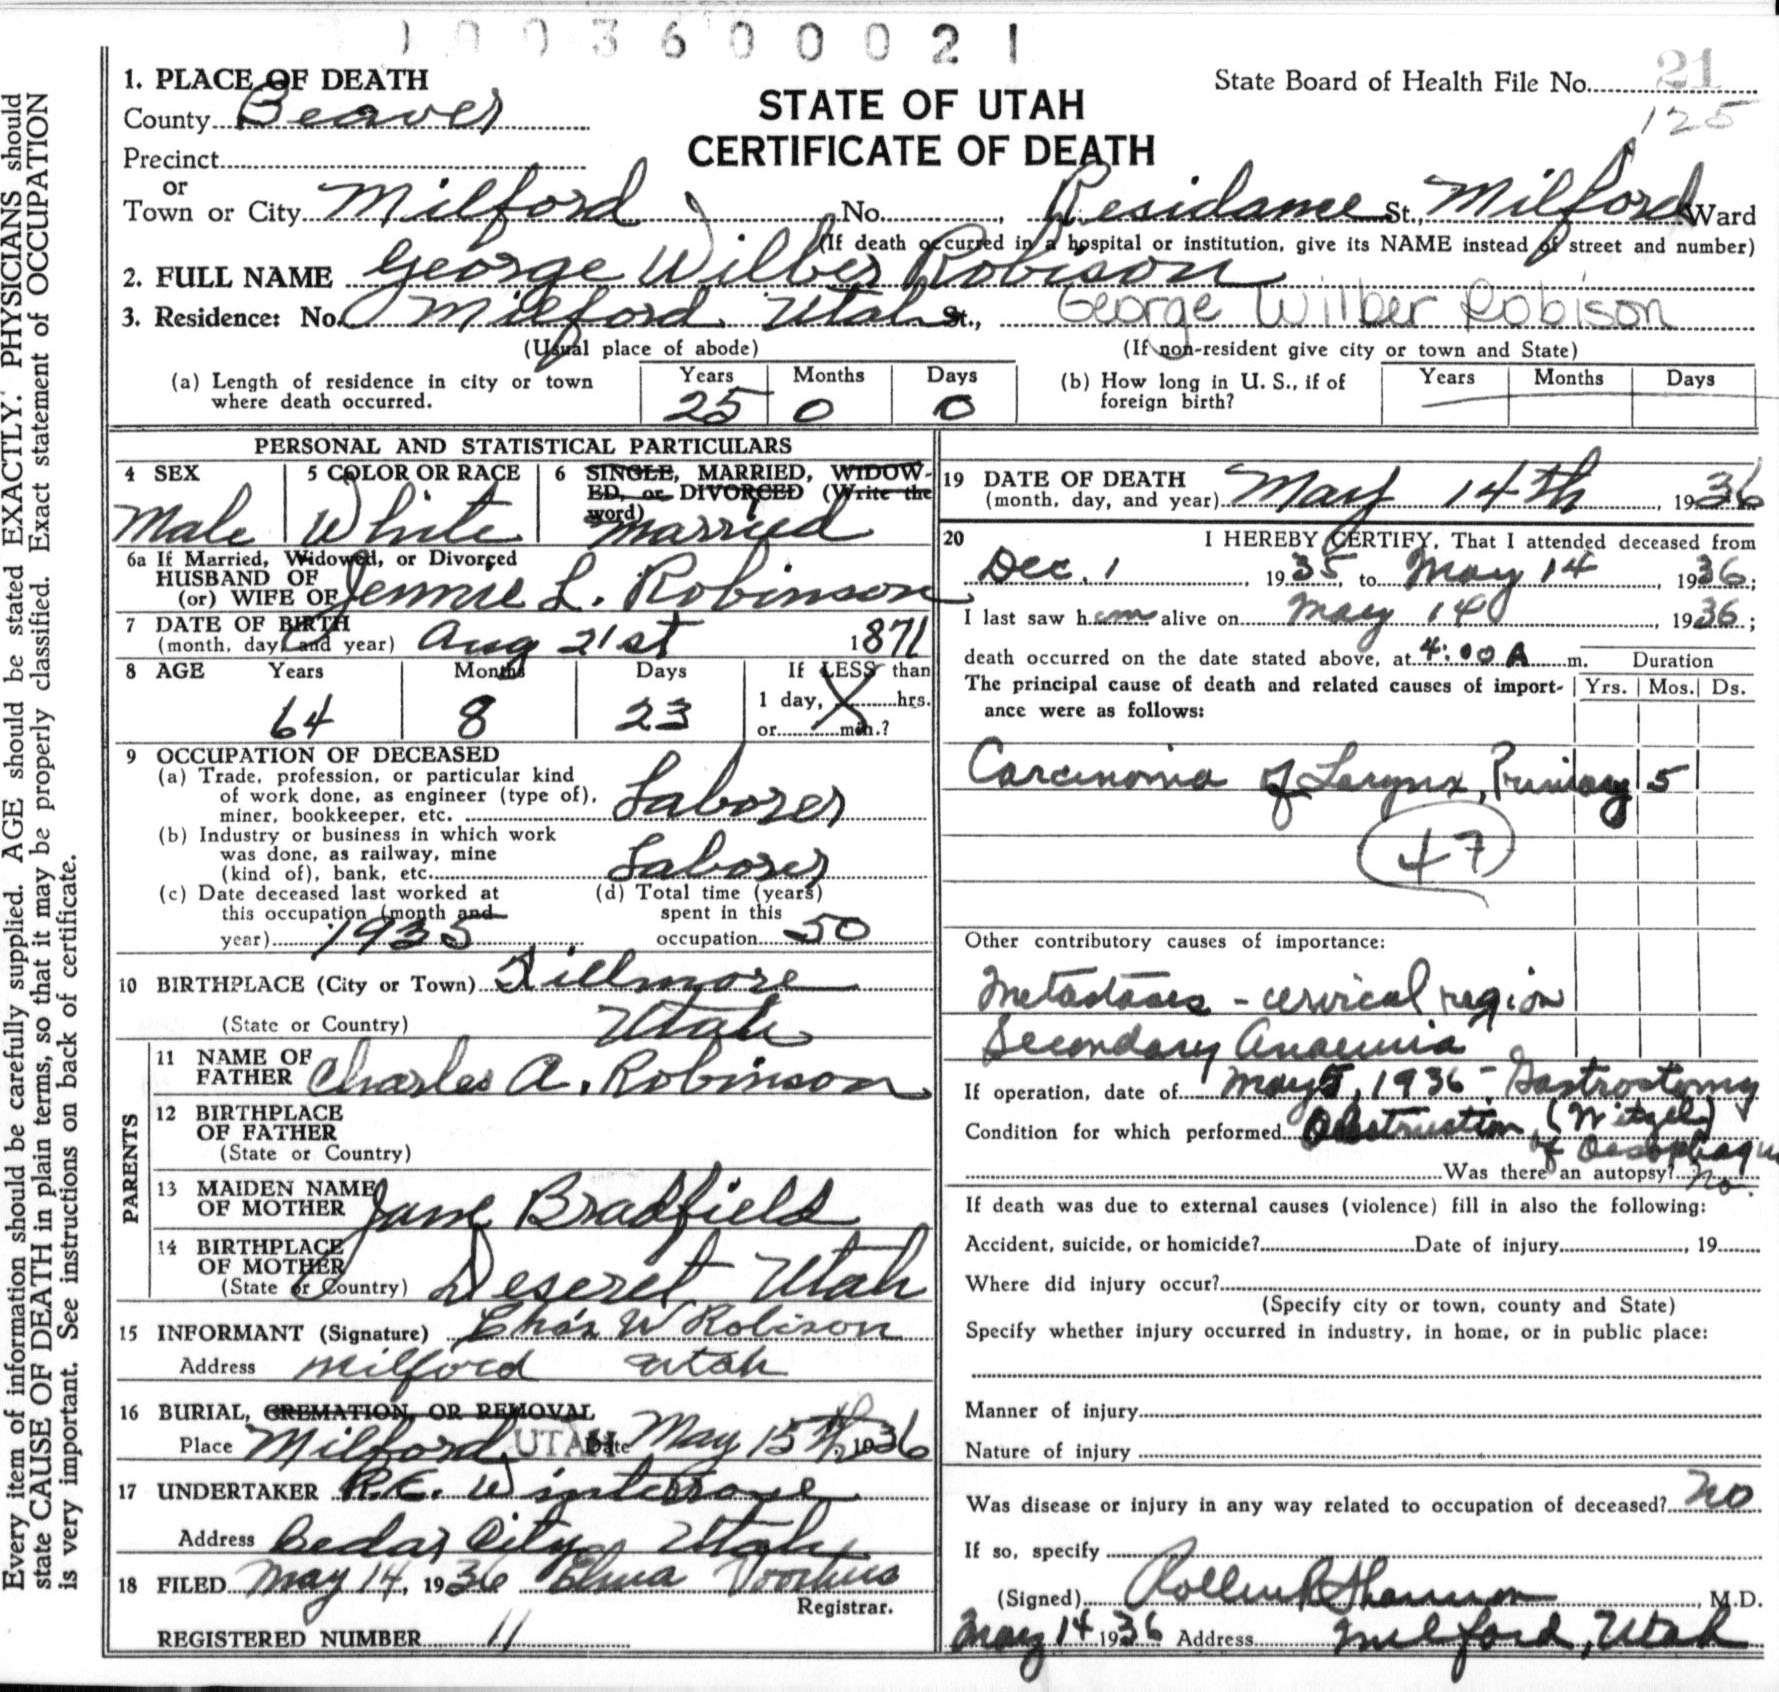 1003600021
1. PLACE OF DEATH
County Beaver
Precinct
or
Town or City Milford No. , Residance St., Milford Ward
STATE OF UTAH
CERTIFICATE OF DEATH
State Board of Health File No. 21
125
(If death occurred in a hospital or institution, give its NAME instead of street and number)
2. FULL NAME George Wilber Robison
3. Residence: No. Milford Utah St., George Wilber Robison
(Usual place of abode) (If non-resident give city or town and State)
(a) Length of residence in city or town where death occurred. Years 25 Months 0 Days 0
(b) How long in U. S., if of foreign birth? Years Months Days
PERSONAL AND STATISTICAL PARTICULARS
4 SEX Male
5 COLOR OR RACE White
6 SINGLE, MARRIED, WIDOWED, or DIVORCED (Write the word) married
6a If Married, Widowed, or Divorced
HUSBAND OF
(or) WIFE OF Jennie L. Robinson
7 DATE OF BIRTH
(month, day, and year) Aug 21st 1871
8 AGE Years 64 Months 8 Days 23 If LESS than
1 day, hrs.
or min.?
9 OCCUPATION OF DECEASED
(a) Trade, profession, or particular kind
of work done, as engineer (type of),
miner, bookkeeper, etc. Laborer
(b) Industry or business in which work
was done, as railway, mine
(kind of), bank, etc. Laborer
(c) Date deceased last worked at
this occupation (month and
year) 1935
(d) Total time (years)
spent in this
occupation 50
10 BIRTHPLACE (City or Town) Fillmore
(State or Country) Utah
PARENTS
11 NAME OF
FATHER Charles A. Robinson
12 BIRTHPLACE
OF FATHER
(State or Country)
13 MAIDEN NAME
OF MOTHER Jane Bradfield
14 BIRTHPLACE
OF MOTHER
(State or Country) Deseret Utah
15 INFORMANT (Signature) Chas W Robison
Address Milford Utah
16 BURIAL, CREMATION, OR REMOVAL
Place Milford, UTAH Date May 15th 1936
17 UNDERTAKER R.E. Winterrose
Address Cedar City Utah
18 FILED May 14, 1936 Elma Voorhies
Registrar.
REGISTERED NUMBER 11
19 DATE OF DEATH
(month, day, and year) May 14th, 1936
20 I HEREBY CERTIFY, That I attended deceased from
Dec. 1, 1935, to May 14, 1936;
I last saw h im alive on May 14, 1936;
death occurred on the date stated above, at 4:00 A m. Duration
The principal cause of death and related causes of importance were as follows: Yrs. Mos. Ds.
Carcinoma of Larynx, Primary 5
47
Other contributory causes of importance:
Metastases - cervical region
Secondary Anaemia
If operation, date of May 5, 1936 - Gastrostomy
Condition for which performed Obstruction, (Witzel)
of Oesophagus
Was there an autopsy? no.
If death was due to external causes (violence) fill in also the following:
Accident, suicide, or homicide? Date of injury , 19
Where did injury occur?
(Specify city or town, county and State)
Specify whether injury occurred in industry, in home, or in public place:
Manner of injury
Nature of injury
Was disease or injury in any way related to occupation of deceased? no
If so, specify
(Signed) , M.D.
May 14 1936 Address Milford, Utah
Every item of information should be carefully supplied. AGE should be stated EXACTLY. PHYSICIANS should
state CAUSE OF DEATH in plain terms, so that it may be properly classified. Exact statement of OCCUPATION
is very important. See instructions on back of certificate.